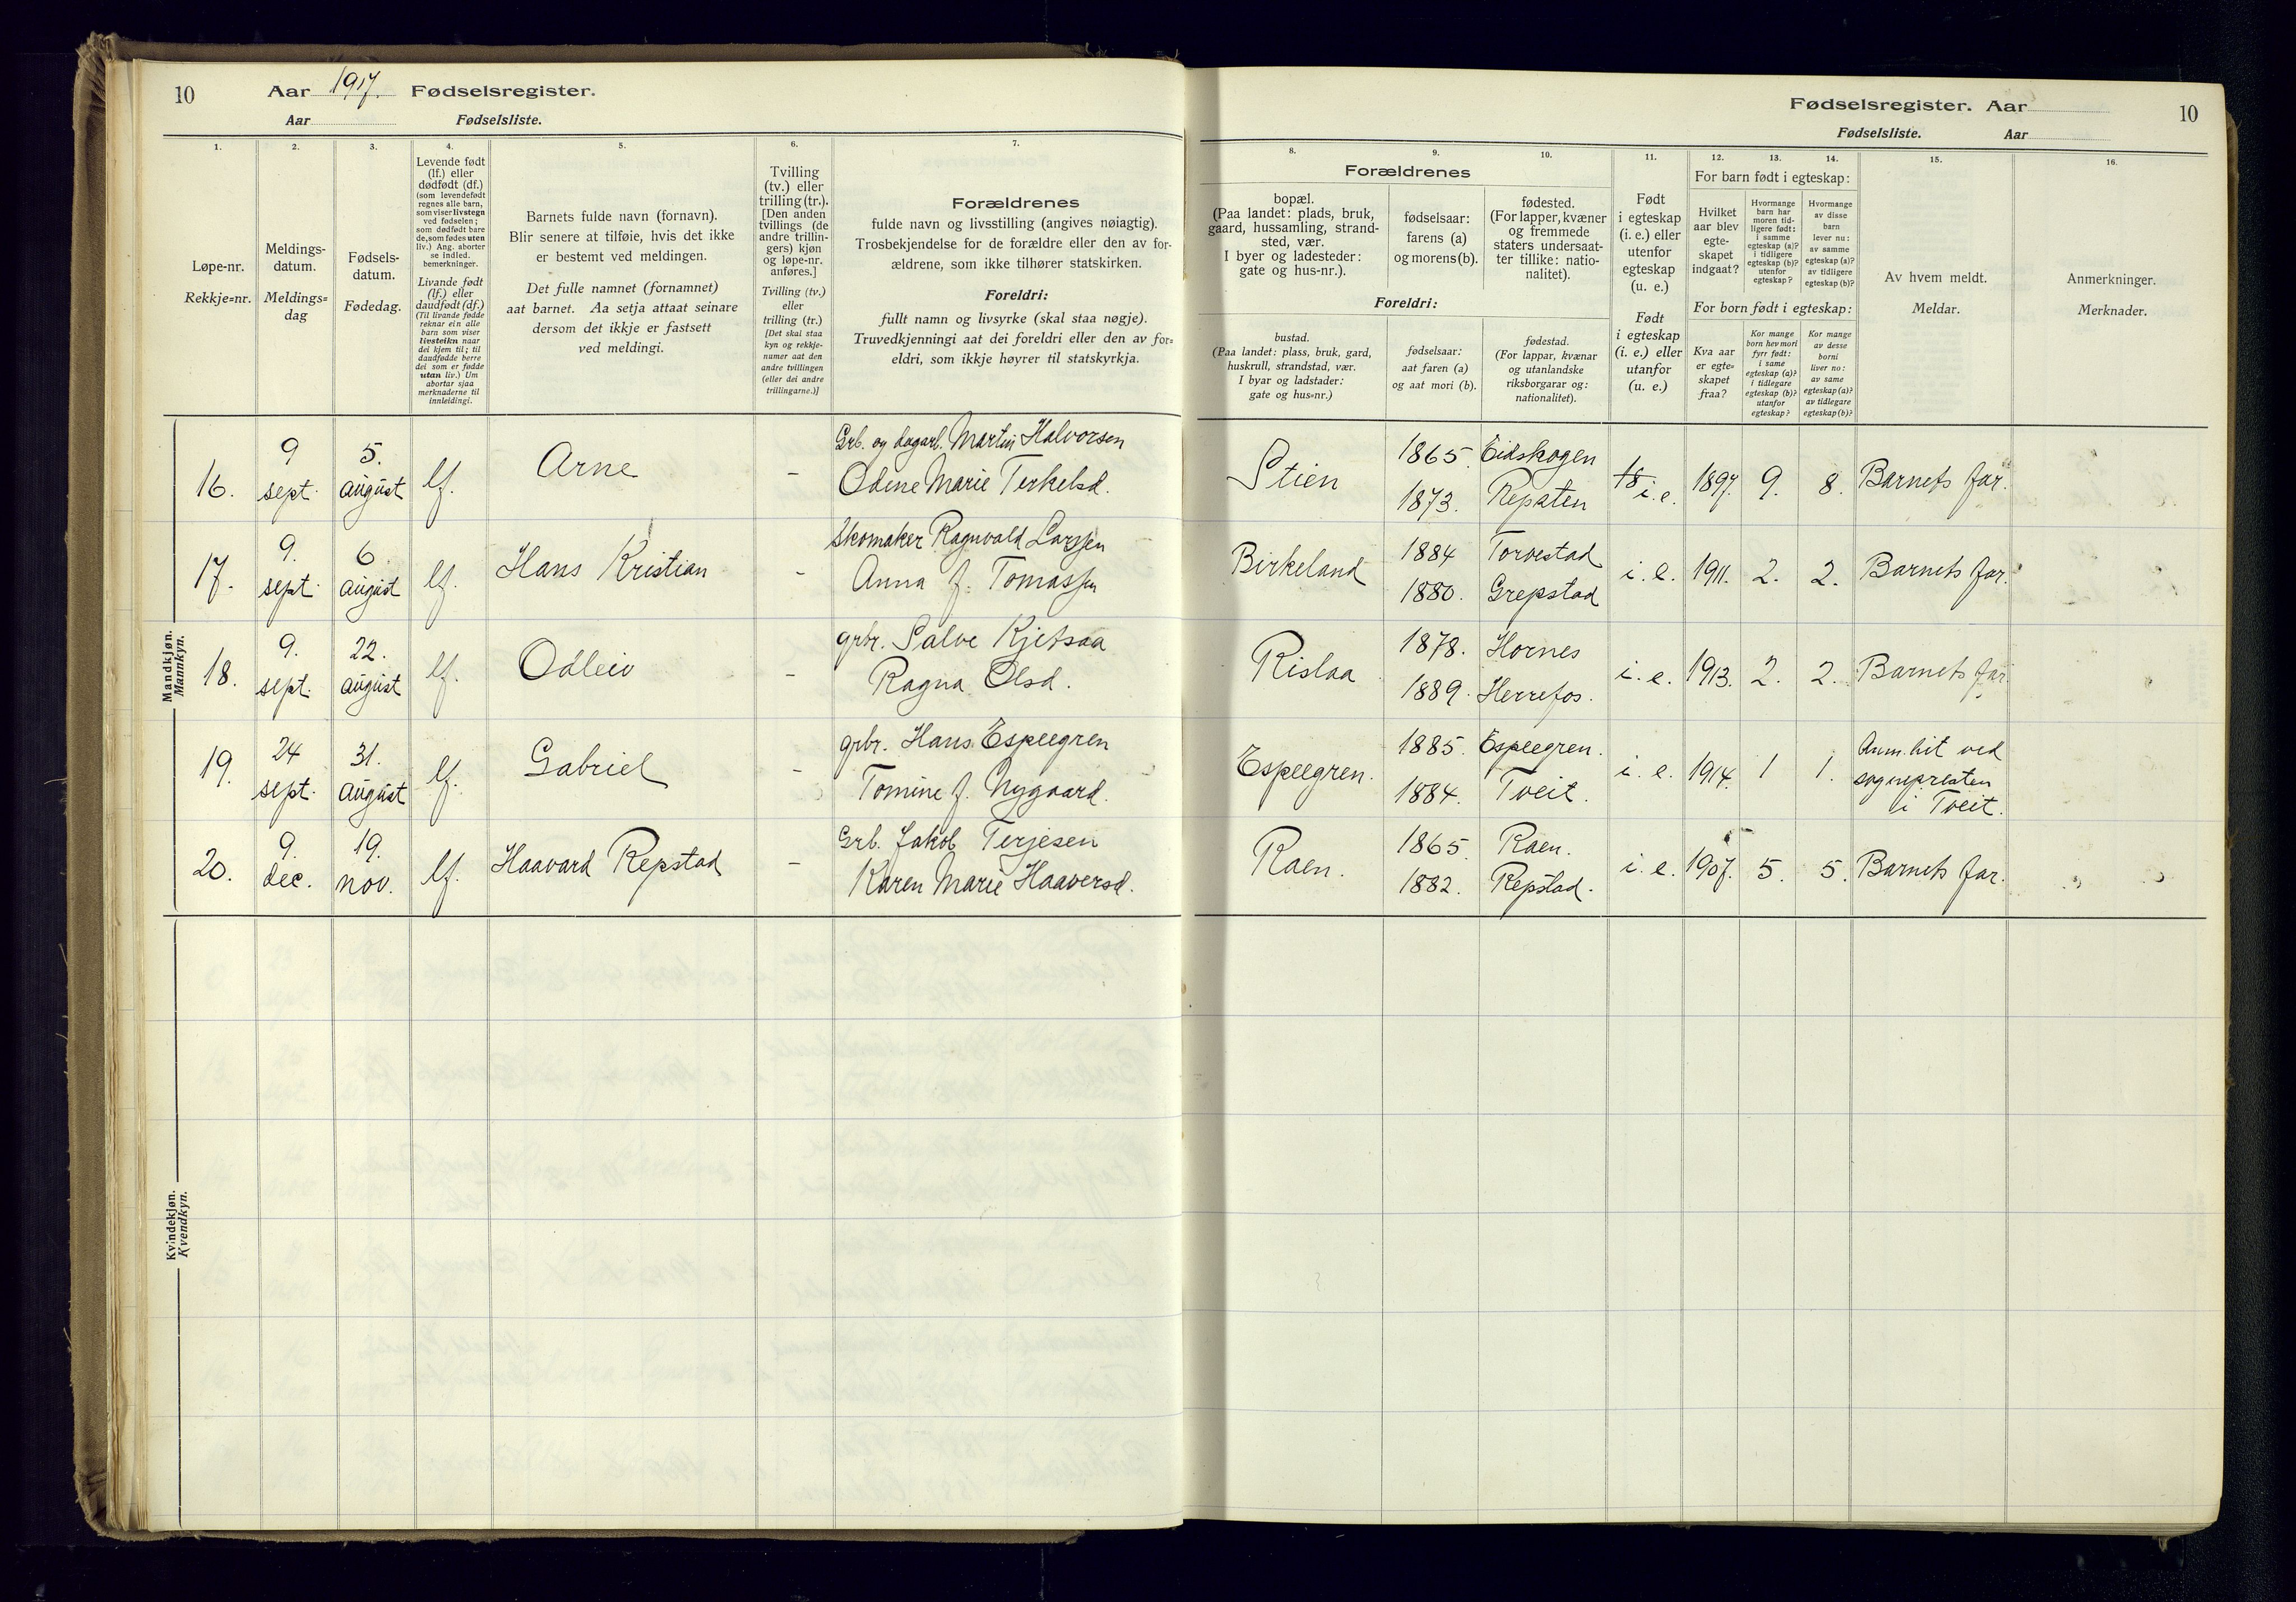 10 Aar 1917. Fødselsregister.
Aar Fødselsliste.
1.
Løpe-nr.
Rekkje=nr.
2.
Meldings-
datum.
Meldings=
dag
3.
Fødsels-
datum.
Fødedag.
4.
Levende født
(lf.) eller
dødfødt (df.)
(som levendefødt
regnes alle barn,
som viser livstegn
ved fødselen;
som dødfødt bare
de, som fødes uten
liv.) Ang. aborter
se indled.
bemerkninger.
Livande født
(lf.) eller
daudfødt (df.)
(Til livande fødde
reknar ein alle
barn som viser
livsteikn naar
dei kjem til; til
daudfødde berre
dei som er fødde
utan liv.) Um
abortar sjaa
merknaderne til
innleidingi.
5.
Barnets fulde navn (fornavn).
Blir senere at tilføie, hvis det ikke
er bestemt ved meldingen.
Det fulle namnet (fornamnet)
aat barnet. Aa setja attaat seinare
dersom det ikkje er fastsett
ved meldingi.
6.
Tvilling
(tv.) eller
trilling (tr.).
[Den anden
tvillings (de
andre trillin-
gers) kjøn
og løpe-nr.
anføres.]
Tvilling (tv.)
eller
trilling (tr.)
[Det skal staa
kyn og rekkje-
numer aat den
andre tvillingen
(eller dei andre
trillingarne.)]
7.
Forældrenes
fulde navn og livsstilling (angives nøiagtig).
Trosbekjendelse for de forældre eller den av for-
ældrene, som ikke tilhører statskirken.
Foreldri:
fullt namn og livsyrke (skal staa nøgje).
Truvedkjenningi aat dei foreldri eller den av for=
eldri, som ikkje høyrer til statskyrkja.
Mandkjøn.
Mannkyn.
16.
9
sept.
5.
august
lf.
Arne
-
Grb. og dagarb. Martin Halvorsen
Odene Marie Terkelsd.
17.
9.
sept.
6
august
lf.
Hans Kristian
-
Skomaker Ragnvald Larssen
Anna f. Tomassen
18.
9.
sept.
22.
august
lf.
Odleiv
-
grbr. Salve Kjetsaa
Ragna Olsd.
19.
24
sept.
31.
august
lf.
Gabriel
-
grbr. Hans Espeegren
Tomine f. Nygaard.
20.
9.
dec.
19.
nov.
lf.
Haavard Repstad
-
Grb. Jakob Terjesen
Karen Marie Haaversd.
Kvindekjøn.
Kvendkyn.
Fødselsregister. Aar 10
Fødselsliste. Aar
8.
Forældrenes
bopæl.
(Paa landet: plads, bruk,
gaard, hussamling, strand-
sted, vær.
I byer og ladesteder:
gate og hus-nr.).
Foreldri:
bustad.
(Paa landet: plass, bruk, gard,
huskrull, strandstad, vær.
I byar og ladstader:
gate og hus=nr.)
9.
fødselsaar:
farens (a)
og morens (b).
fødselsaar:
aat faren (a)
og aat mori (b).
10.
fødested.
(For lapper, kvæner
og fremmede
staters undersaat-
ter tillike: natio-
nalitet).
fødestad.
(For lappar, kvænar
og utanlandske
riksborgarar og:
nationalitet).
11.
Født
i egteskap
(i. e.) eller
utenfor
egteskap
(u. e.)
Født
i egteskap
(i. e.) eller
utanfor
(u. e.)
For barn født i egteskap:
12.
Hvilket
aar blev
egte-
skapet
indgaat?
13.
Hvormange
barn har
moren tid-
ligere født:
i samme
egteskap (a)?
i tidligere
egteskap (b)?
utenfor
egteskap?
14.
Hvormange
av disse
barn
lever nu:
av samme
egteskap (a)?
av tidligere
egteskap (b)?
For born født i egteskap:
Kva aar
er egte=
skapet
fraa?
Kor mange
born hev mori
fyrr født:
i same
egteskap (a)?
i tidlegare
egteskap (b)?
utanfor
egteskap?
Kor mange
av desse
borni
liver no:
av same
egteskap (a)?
av tidlegare
egteskap (b)?
15.
Av hvem meldt.
Meldar.
16.
Anmerkninger.
Merknader.
Stien
1865. Eidskogen
1873. Repsten
i. e.
1897.
9.
8.
Barnets far.
Birkeland
1884 Torvestad
1880. Grepstad
i. e.
1911.
2.
2.
Barnets far.
Rislaa
1878. Hornes
1889. Herrefos.
i. e.
1913.
2.
2.
Barnets far.
Espeegren.
1885. Espeegren.
1884. Tveit.
i. e.
1914.
1
1.
Anm. hit ved
sognepresten
i Tveit.
Raen.
1865. Raen.
1882. Repstad.
i. e.
1907.
5.
5.
Barnets far.